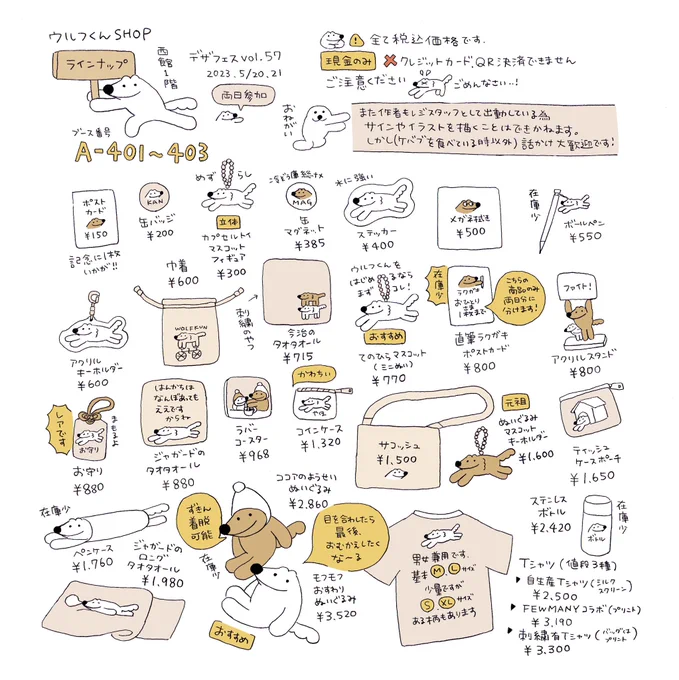 ウルフくんSHOP
ラインナップ
西館1階
デザフェスvol.57
2023.5/20.21
両日参加
ブース番号
A-401〜403
全て税込価格です.
現金のみ
クレジットカード,QR決済できません
ご注意ください
ごめんなさい…!
おねがい
また作者もレジスタッフとして出動している為
サインやイラストを描くことはできかねます。
しかし(ケバブを食べている時以外)話かけ大歓迎です!
ポスト
カード
¥150
記念に1枚
いかが!!
KAN
缶バッジ
¥200
めずらし
立体
カプセルトイ
マスコット
フィギュア
¥300
MAG
缶
マグネット
¥385
水に強い
ステッカー
¥400
メガネ拭き
¥500
在庫少
ボールペン
¥550
アクリル
キーホルダー
¥600
巾着
¥600
WOLFKUN
刺繍のやつ
今治の
タオタオール
¥715
ウルフくんを
はじめるなら
まずコレ!
おすすめ
てのひらマスコット
(ミニぬい)
¥770
在庫少
ラクガキ
おひとり
さま
1枚まで
こちらの
商品のみ
両日分に
分けます!
直筆ラクガキ
ポストカード
¥800
ファイト!
アクリルスタンド
¥800
レアです
まもるよ
お守り
お守り
¥880
はんかちは
なんぼあっても
ええです
からね
ジャガードの
タオタオール
¥880
ラバー
コースター
¥968
かわちい
やほ
コインケース
¥1,320
サコッシュ
¥1,500
元祖
ぬいぐるみ
マスコット
キーホルダー
¥1,600
ティッシュ
ケースポーチ
¥1,650
在庫少
ペンケース
¥1,760
ジャガードの
ロング
タオタオール
¥1,980
ずきん
着脱
可能
ココアのようせい
ぬいぐるみ
¥2,860
在庫少
目を合わしたら
最後、
おむかえしたく
な〜る
モフモフ
おすわり
ぬいぐるみ
¥3,520
おすすめ
男女兼用です.
基本M,Lサイズ
少量ですが
S,XLサイズ
ある柄もあります
ステンレス
ボトル
¥2,420
ボトル
在庫少
Tシャツ(値段3種)
自生産Tシャツ(シルクスクリーン)
¥2,500
FEWMANYコラボ(プリント)
¥3,190
刺繍有Tシャツ(バックはプリント)
¥3,300